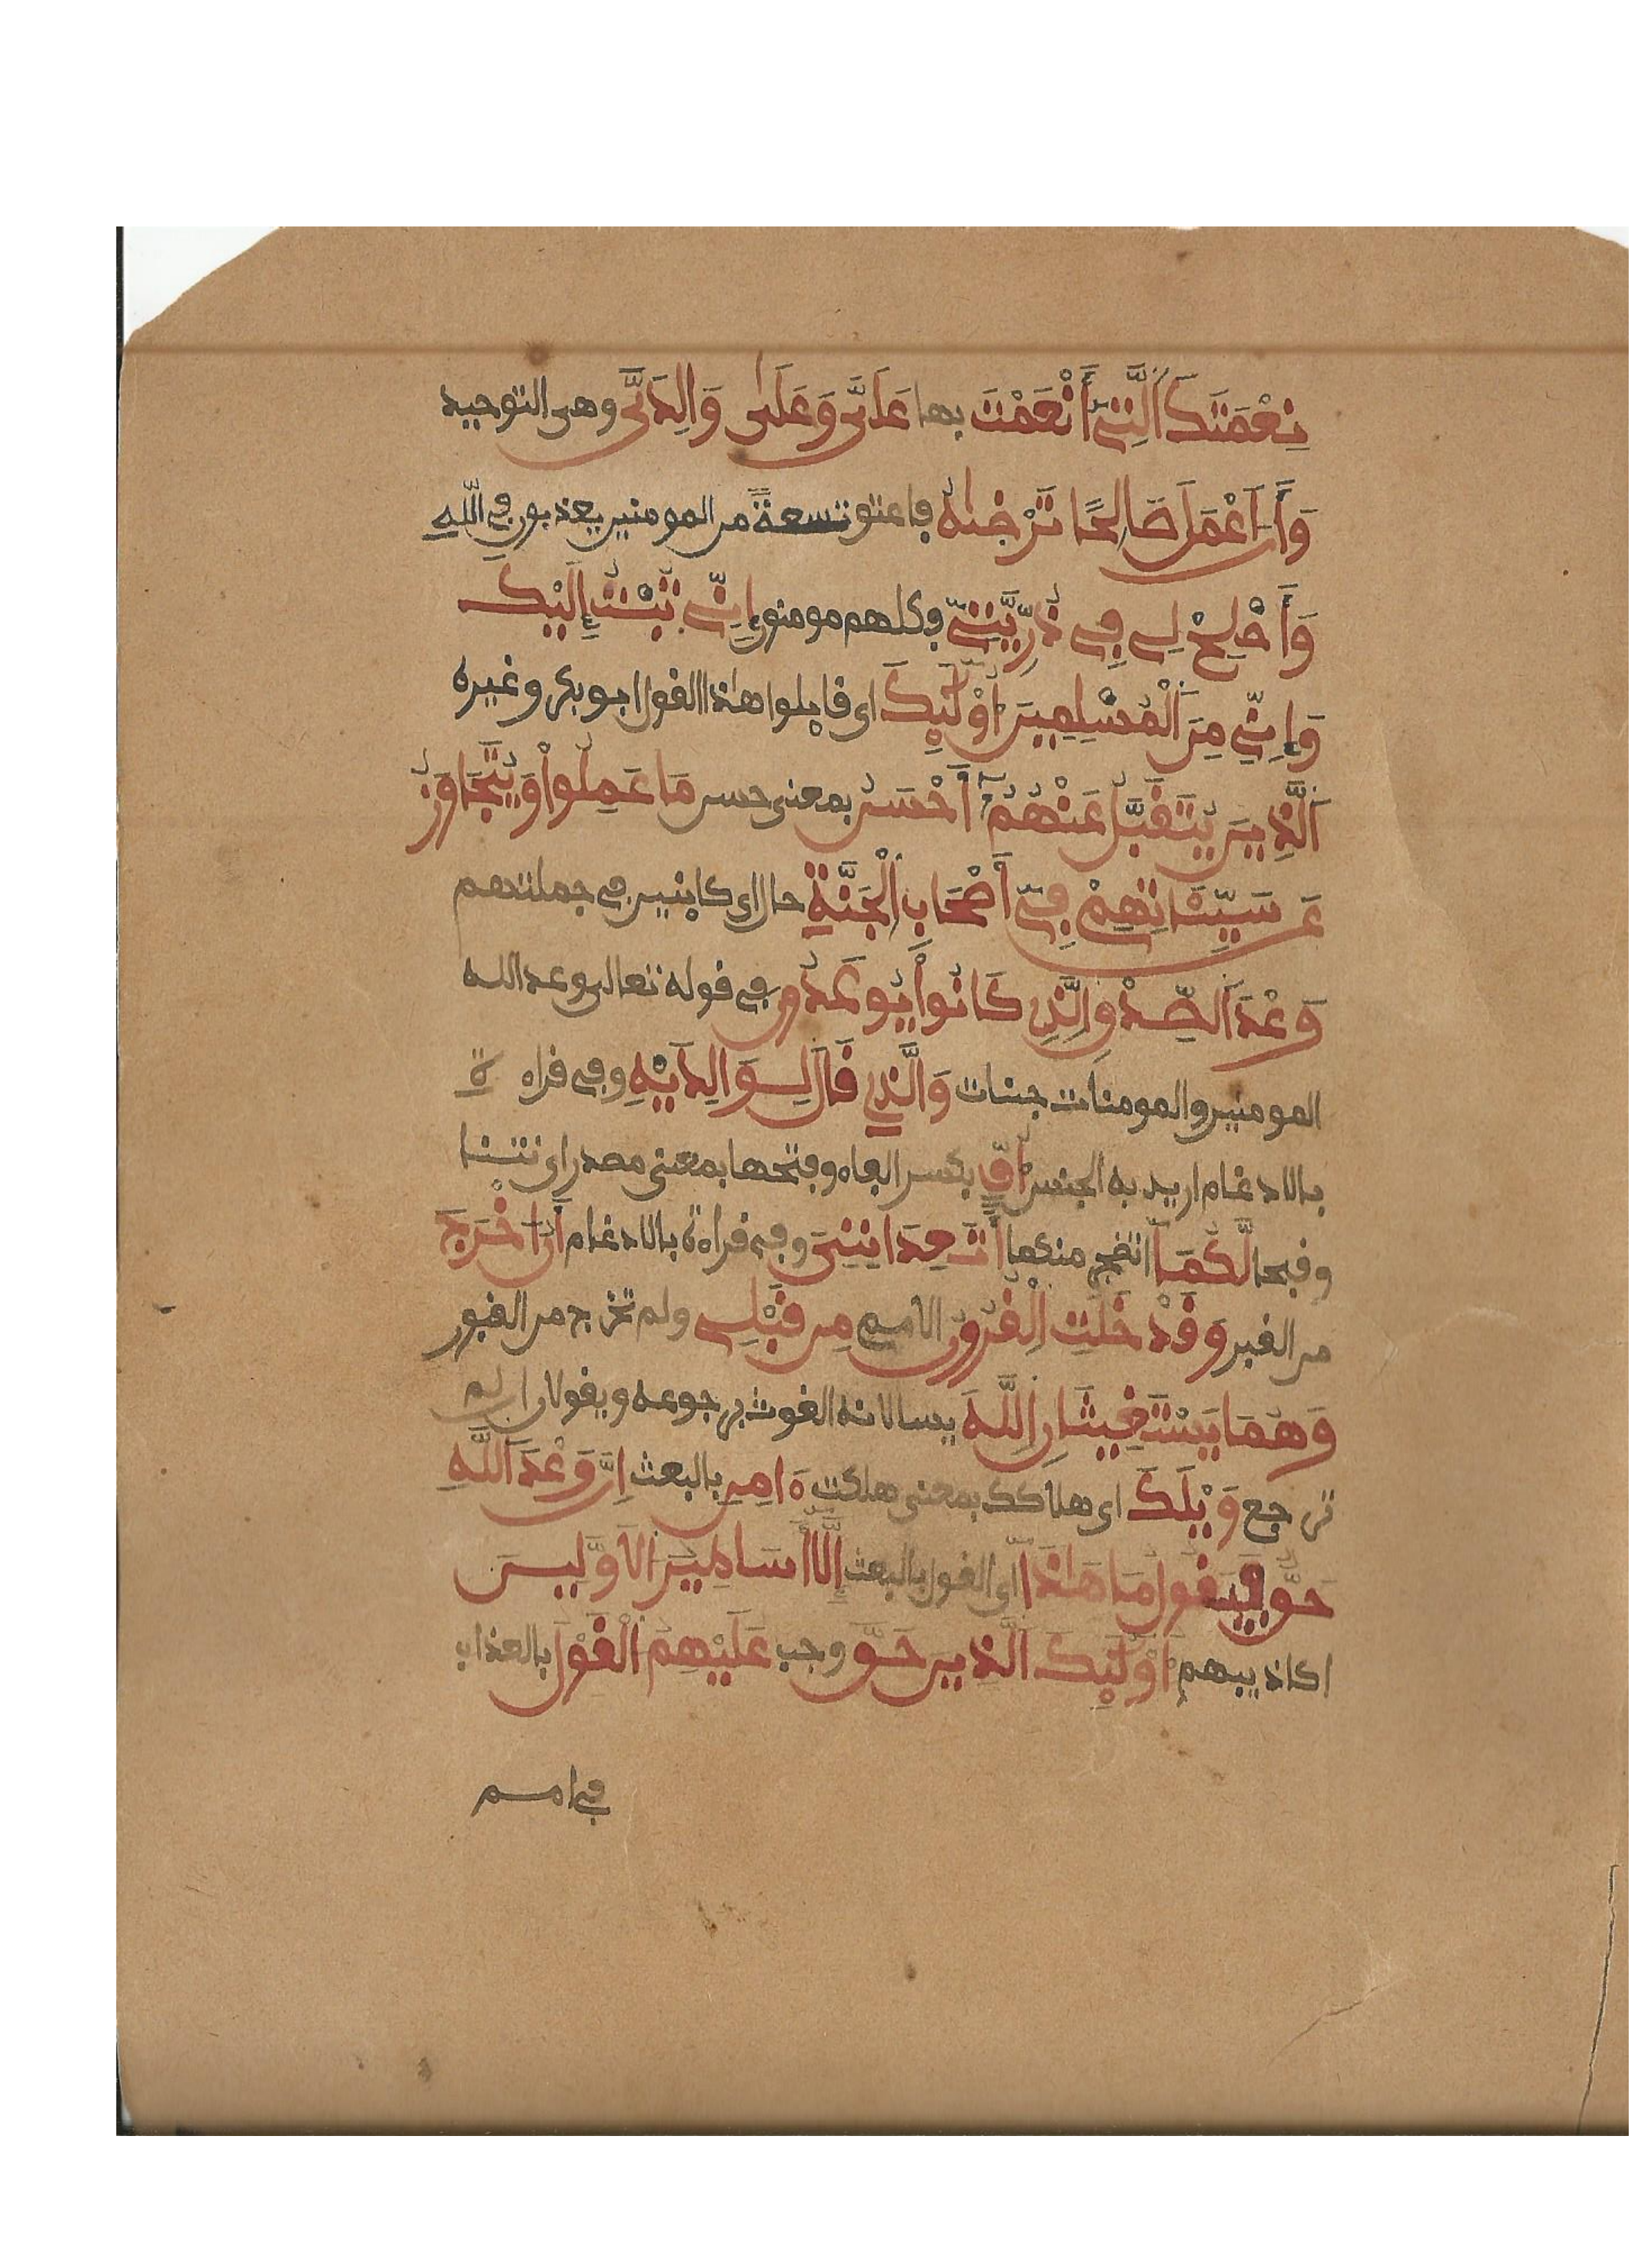 نِعْمَتَكَ اَلَّتِيٓ أَنْعَمْتَ بها عَلَيَّ وَعَلَىٰ وَالِدَيَّ وهي التوحيد
وَأَنَ اَعْمَلَ صَالِحًا تَرْضَىٰهُ فاعتق تسعة من المومنين يعذبون في اللّه
وَأَصْلِحْ لِي فِي ذُرِّيَّتِيَ فكلهم مومنون إِنِّي تُبْتُ إِلَيْكَ
وَإِنِّي مِنَ اَلْمُسْلِمِينَ أُوْلَٰٓئِكَ اي قايلوا هاذا القول ابو بكر وغيره
اَلَّذِينَ يُتَقَبَّلُ عَنْهُمُۥٓ أَحْسَنُ بمعنى حسن مَا عَمِلُواْ وَيُتَجَاوَزُ
عَن سَيِّـَٔاتِهِمْ فِيٓ أَصْحَابِ اِلْجَنَّةِ حال اي كاينين في جملتهم
وَعْدَ اَلصِّدْقِ اِلذِي كَانُواْ يُوعَدُونَ في قوله تعالى وعد الله
المومنين والمومنات جنات وَالَّذِي قَالَ لِوَالِدَيْهِ وفي قراه ة
بالادغام اريد به الجنس أُفٍّ بكسر الفاء وفتحها بمعنى مصدر اي نتنا
وقبحا لَّكُمَآ اتضجر منكما أَتَعِدَانِنِيَ وفي قراءة بالادغام أَنُ اخْرَجَ
من القبر وَقَدْ خَلَتِ اِلْقُرُونُ الامم مِن قَبْلِي ولم تخرج من القبور
وَهُمَا يَسْتَغِيثَانِ اِللَّهَ يسالانه الغوث برجوعه ويقولان ان لم
ترجع وَيْلَكَ اي هلاكك بمعنى هلكت ءَامِن بالبعث إِنَّ وَعْدَ اَللَّهِ
حَقٌّ فَيَقُولُ مَا هَاذَآ اي القول بالبعث إِلَّآ أَسَاطِيرُ الاَوَّلِينَ
اكاذيبهم أُوْلَٰٓئِكَ اَلَّذِينَ حَقَّ وجب عَلَيْهِمُ اُلْقَوْلُ بالعذاب
في امم